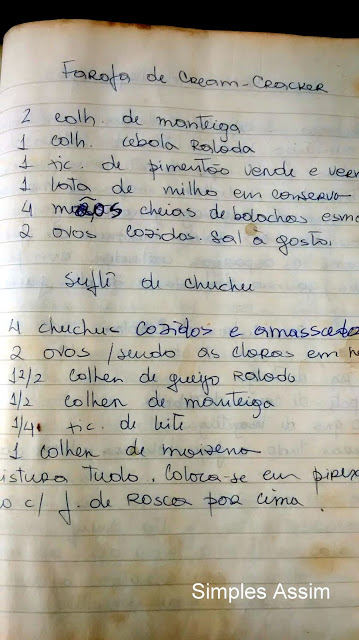 Farofa de Cream-Cracker
2 colh. de manteiga
1 colh. cebola ralada
1 xic. de pimentão verde e verm
1 lata de milho em conserva
4 mãos cheias de bolachas esma
2 ovos cozidos. sal à gosto.
suflê de chuchu
4 chuchus cozidos e amassados
2 ovos / sendo as claras em ne
1 1/2 colher de queijo ralado
1/2 colher de manteiga
1/4 xic. de leite
1 colher de maizena
istura tudo. Coloca-se em pirex
o c/ f. de rosca por cima.
Simples Assim